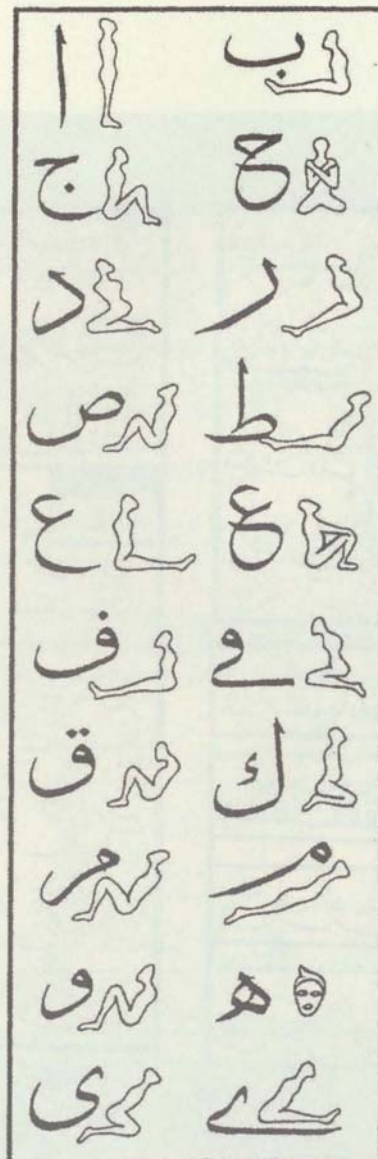 ا ب
ج ح
د ر
ص ط
ع ع
ف في
ق ك
م م
و ه
ى ے